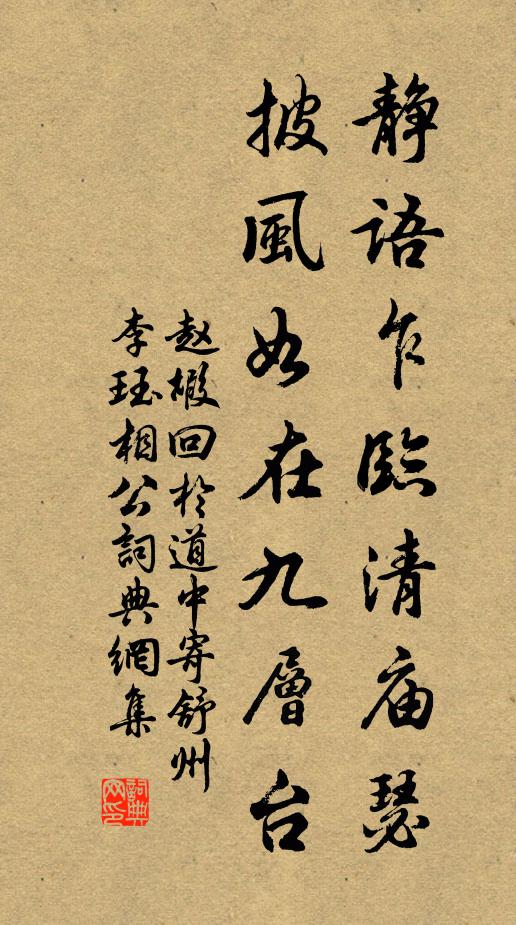 静語乍臨清庙瑟
披風如在九層台
赵嘏回於道中寄舒州
李珏相公詞典網集
詞典
网印